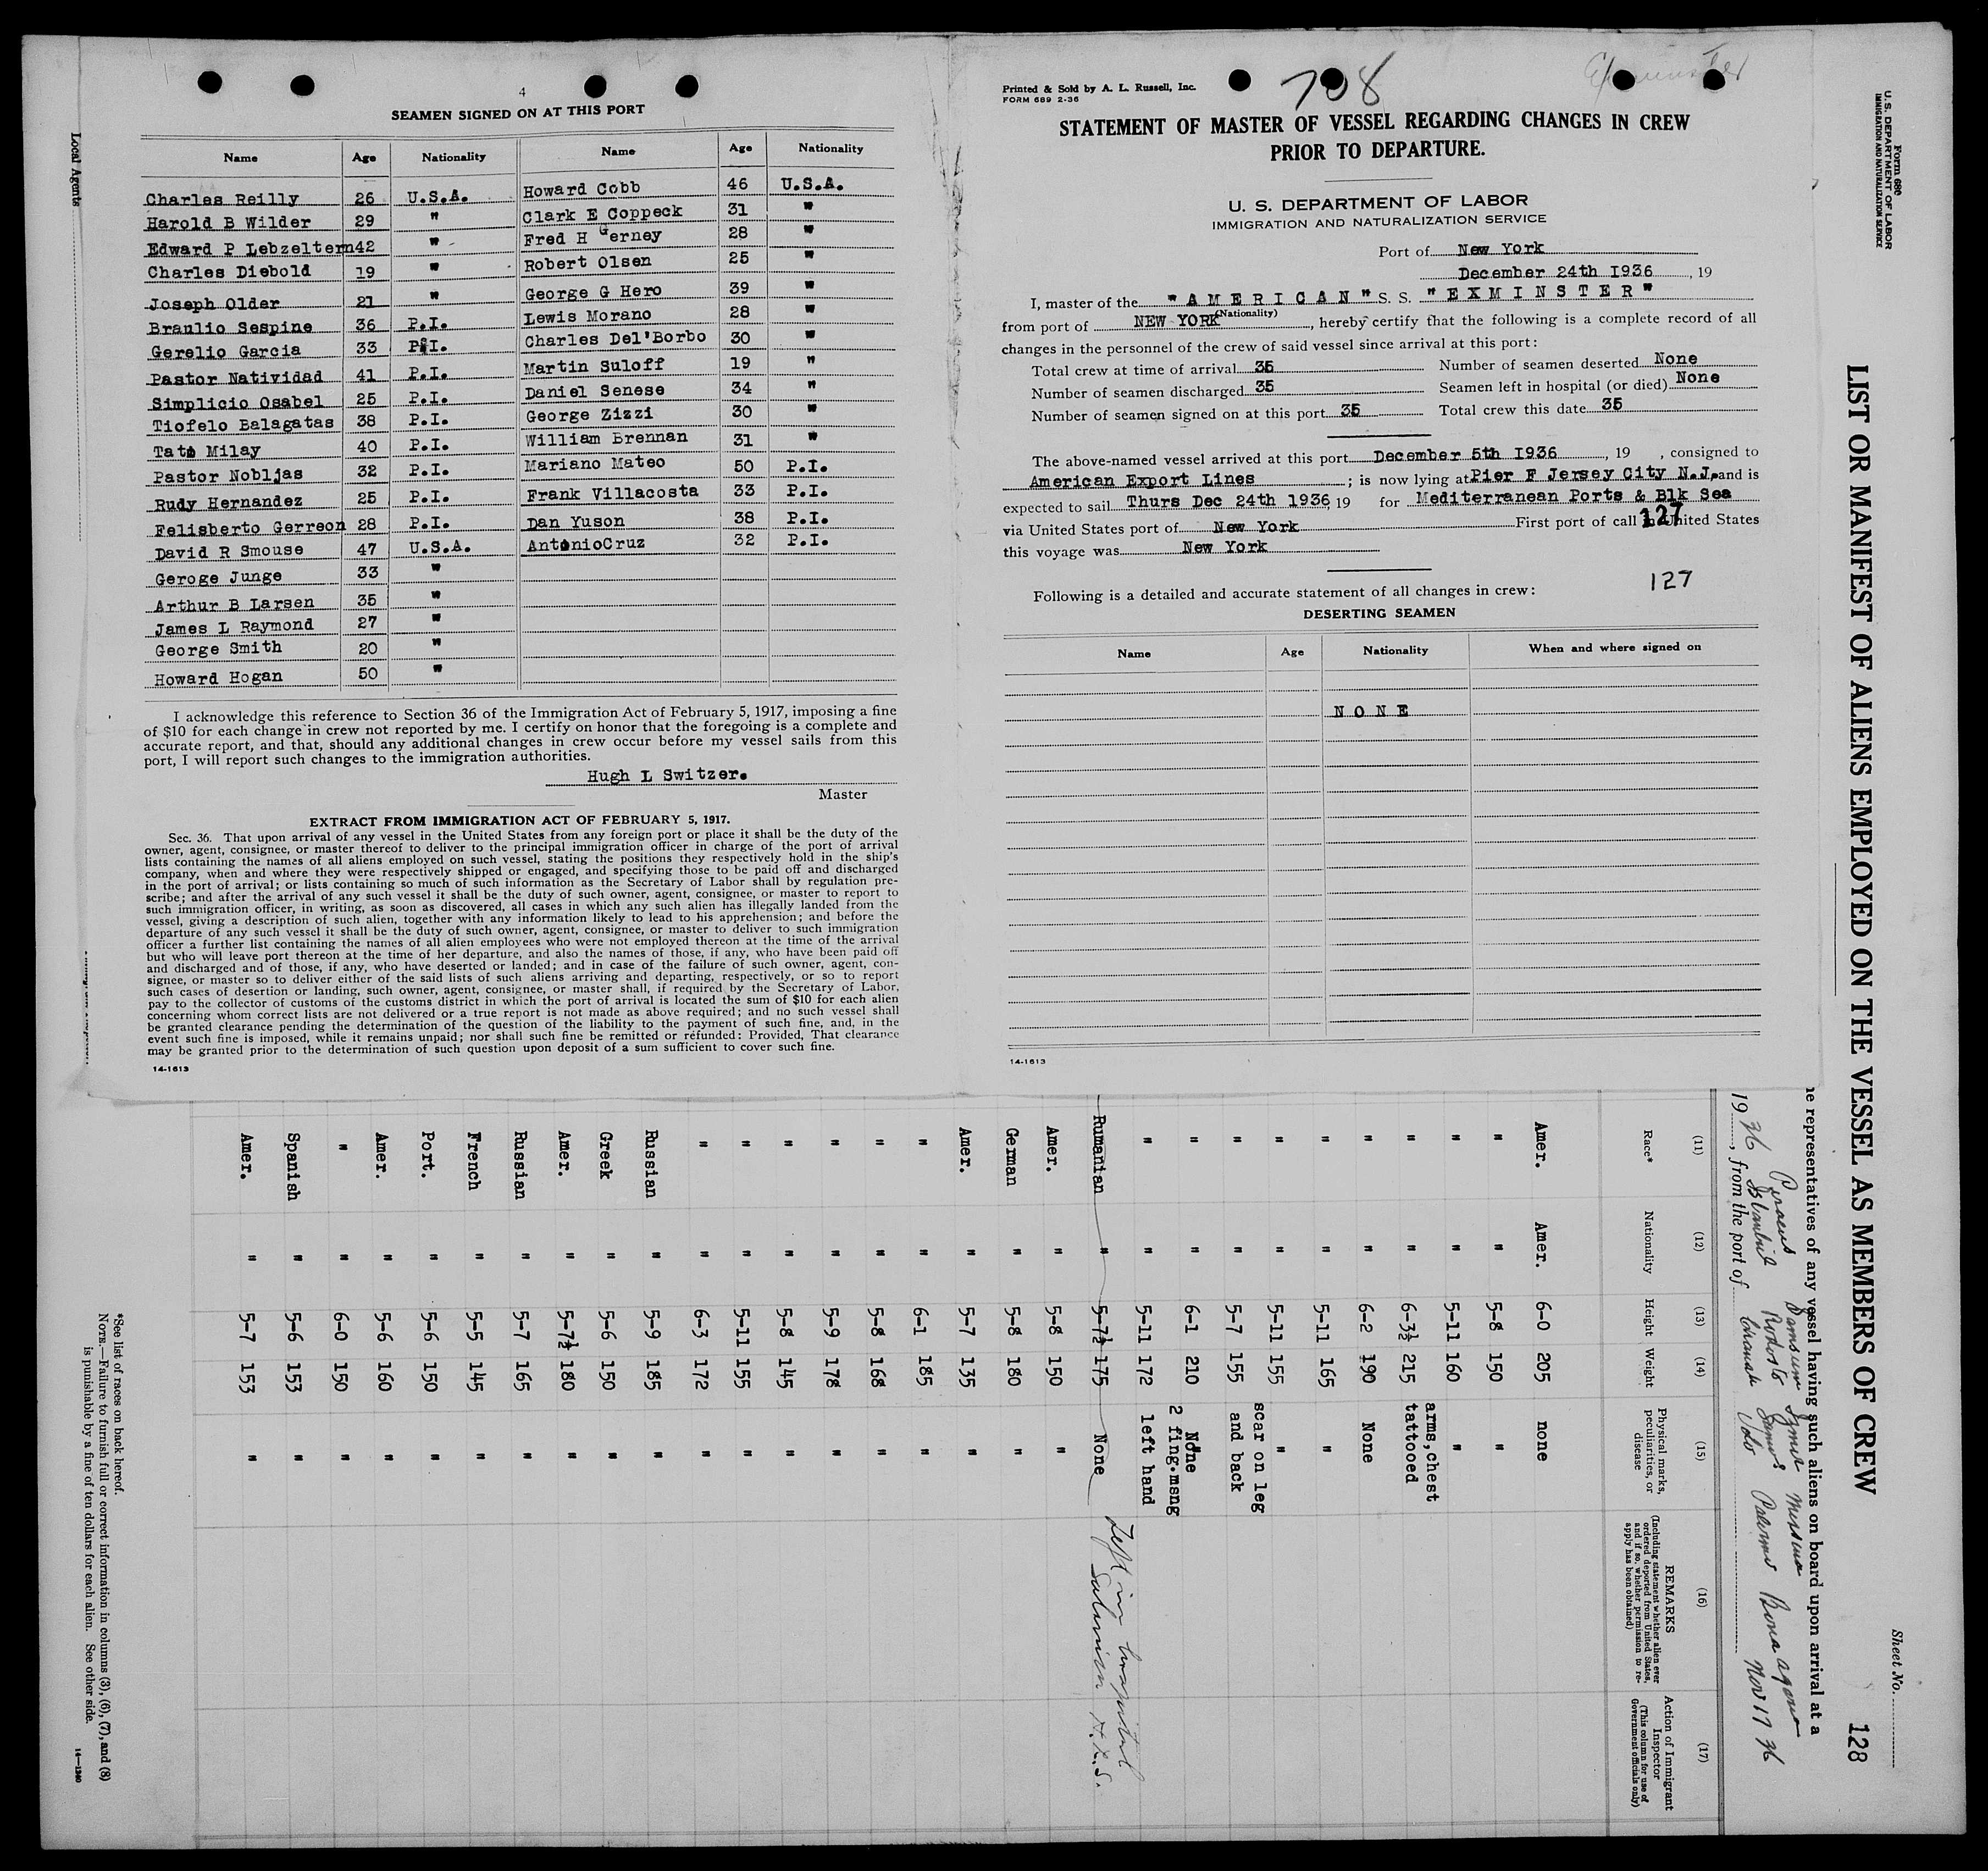 4
SEAMEN SIGNED ON AT THIS PORT
Name Age Nationality Name Age Nationality
Charles Reilly 26 U.S.A. Howard Cobb 46 U.S.A.
Harold B Wilder 29 " Clark E Coppeck 31 "
Edward P Lebzeltern 42 " Fred H Gerney 28 "
Charles Diebold 19 " Robert Olsen 25 "
Joseph Older 21 " George G Hero 39 "
Braulio Sespine 36 P.I. Lewis Morano 28 "
Gerelio Garcia 33 P.I. Charles Del'Borbo 30 "
Pastor Natividad 41 P.I. Martin Suloff 19 "
Simplicio Osabel 25 P.I. Daniel Senese 34 "
Tiofelo Balagatas 38 P.I. George Zizzi 30 "
Tato Milay 40 P.I. William Brennan 31 "
Pastor Nobljas 32 P.I. Mariano Mateo 50 P.I.
Rudy Hernandez 25 P.I. Frank Villacosta 33 P.I.
Felisberto Gerreon 28 P.I. Dan Yuson 38 P.I.
David R Smouse 47 U.S.A. AntonioCruz 32 P.I.
Geroge Junge 33 "
Arthur B Larsen 35 "
James L Raymond 27 "
George Smith 20 "
Howard Hogan 50 "
I acknowledge this reference to Section 36 of the Immigration Act of February 5, 1917, imposing a fine
of $10 for each change in crew not reported by me. I certify on honor that the foregoing is a complete and
accurate report, and that, should any additional changes in crew occur before my vessel sails from this
port, I will report such changes to the immigration authorities.
Hugh L Switzer.
Master
EXTRACT FROM IMMIGRATION ACT OF FEBRUARY 5, 1917.
Sec. 36. That upon arrival of any vessel in the United States from any foreign port or place it shall be the duty of the
owner, agent, consignee, or master thereof to deliver to the principal immigration officer in charge of the port of arrival
lists containing the names of all aliens employed on such vessel, stating the positions they respectively hold in the ship's
company, when and where they were respectively shipped or engaged, and specifying those to be paid off and discharged
in the port of arrival; or lists containing so much of such information as the Secretary of Labor shall by regulation pre-
scribe; and after the arrival of any such vessel it shall be the duty of such owner, agent, consignee, or master to report to
such immigration officer, in writing, as soon as discovered, all cases in which any such alien has illegally landed from the
vessel, giving a description of such alien, together with any information likely to lead to his apprehension; and before the
departure of any such vessel it shall be the duty of such owner, agent, consignee, or master to deliver to such immigration
officer a further list containing the names of all alien employees who were not employed thereon at the time of the arrival
but who will leave port thereon at the time of her departure, and also the names of those, if any, who have been paid off
and discharged and of those, if any, who have deserted or landed; and in case of the failure of such owner, agent, con-
signee, or master so to deliver either of the said lists of such aliens arriving and departing, respectively, or so to report
such cases of desertion or landing, such owner, agent, consignee, or master shall, if required by the Secretary of Labor,
pay to the collector of customs of the customs district in which the port of arrival is located the sum of $10 for each alien
concerning whom correct lists are not delivered or a true report is not made as above required; and no such vessel shall
be granted clearance pending the determination of the question of the liability to the payment of such fine, and, in the
event such fine is imposed, while it remains unpaid; nor shall such fine be remitted or refunded: Provided, That clearance
may be granted prior to the determination of such question upon deposit of a sum sufficient to cover such fine.
14-1613
Local Agents
Printed & Sold by A. L. Russell, Inc.
FORM 689 2-36
708
Exminster
STATEMENT OF MASTER OF VESSEL REGARDING CHANGES IN CREW
PRIOR TO DEPARTURE.
U. S. DEPARTMENT OF LABOR
IMMIGRATION AND NATURALIZATION SERVICE
Port of New York
December 24th 1936, 19
I, master of the "AMERICAN" S. S. "EXMINSTER"
(Nationality)
from port of NEW YORK, hereby certify that the following is a complete record of all
changes in the personnel of the crew of said vessel since arrival at this port:
Total crew at time of arrival 35 Number of seamen deserted None
Number of seamen discharged 35 Seamen left in hospital (or died) None
Number of seamen signed on at this port 35 Total crew this date 35
The above-named vessel arrived at this port December 5th 1936, 19 , consigned to
American Export Lines ; is now lying at Pier F Jersey City N.J. and is
expected to sail Thurs Dec 24th 1936, 19 for Mediterranean Ports & Blk Sea
via United States port of New York First port of call in United States
127
this voyage was New York
127
Following is a detailed and accurate statement of all changes in crew:
DESERTING SEAMEN
Name Age Nationality When and where signed on
NONE
14-1613
Form 680
U. S. DEPARTMENT OF LABOR
IMMIGRATION AND NATURALIZATION SERVICE
LIST OR MANIFEST OF ALIENS EMPLOYED ON THE VESSEL AS MEMBERS OF CREW
Sheet No.
128
he representatives of any vessel having such aliens on board upon arrival at a
Piraeus Samsun Izmir Messina
Istanbul Rodosto Samos Palermo Bona
1936, from the port of Volo Nov 17 36
(11) (12) (13) (14) (15) (16) (17)
Race* Nationality Height Weight Physical marks, peculiarities, or disease
REMARKS
(Including statement whether alien ever ordered deported from United States, and if so, whether permission to re-apply has been obtained)
Action of Immigrant Inspector
(This column for use of Government officials only)
Amer. Amer. 6-0 205 none
" " 5-8 150 "
" " 5-11 160 "
" " 6-3½ 215 arms,chest tattooed
" " 6-2 190 None
" " 5-11 165 "
" " 5-11 155 "
" " 5-7 155 scar on leg and back
" " 6-1 210 None
" " 5-11 172 2 fing.msng left hand
Rumanian " 5-7½ 175 None Left in hospital
Amer. " 5-8 150 "
German " 5-8 180 "
Amer. " 5-7 135 "
" " 6-1 185 "
" " 5-8 168 "
" " 5-9 178 "
" " 5-8 145 "
" " 5-11 155 "
" " 6-3 172 "
Russian " 5-9 185 "
Greek " 5-6 150 "
Amer. " 5-7½ 180 "
Russian " 5-7 165 "
French " 5-5 145 "
Port. " 5-6 150 "
Amer. " 5-6 160 "
" " 6-0 150 "
Spanish " 5-6 153 "
Amer. " 5-7 153 "
*See list of races on back hereof.
NOTE.—Failure to furnish full or correct information in columns (3), (6), (7), and (8)
is punishable by a fine of ten dollars for each alien. See other side.
14—1240